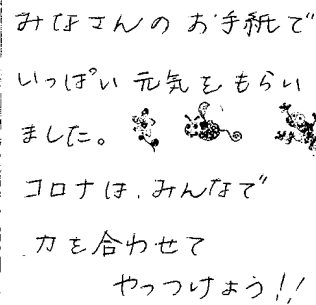 みなさんのお手紙で
いっぱい元気をもらい
ました。
コロナは、みんなで
力を合わせて
やっつけよう!!